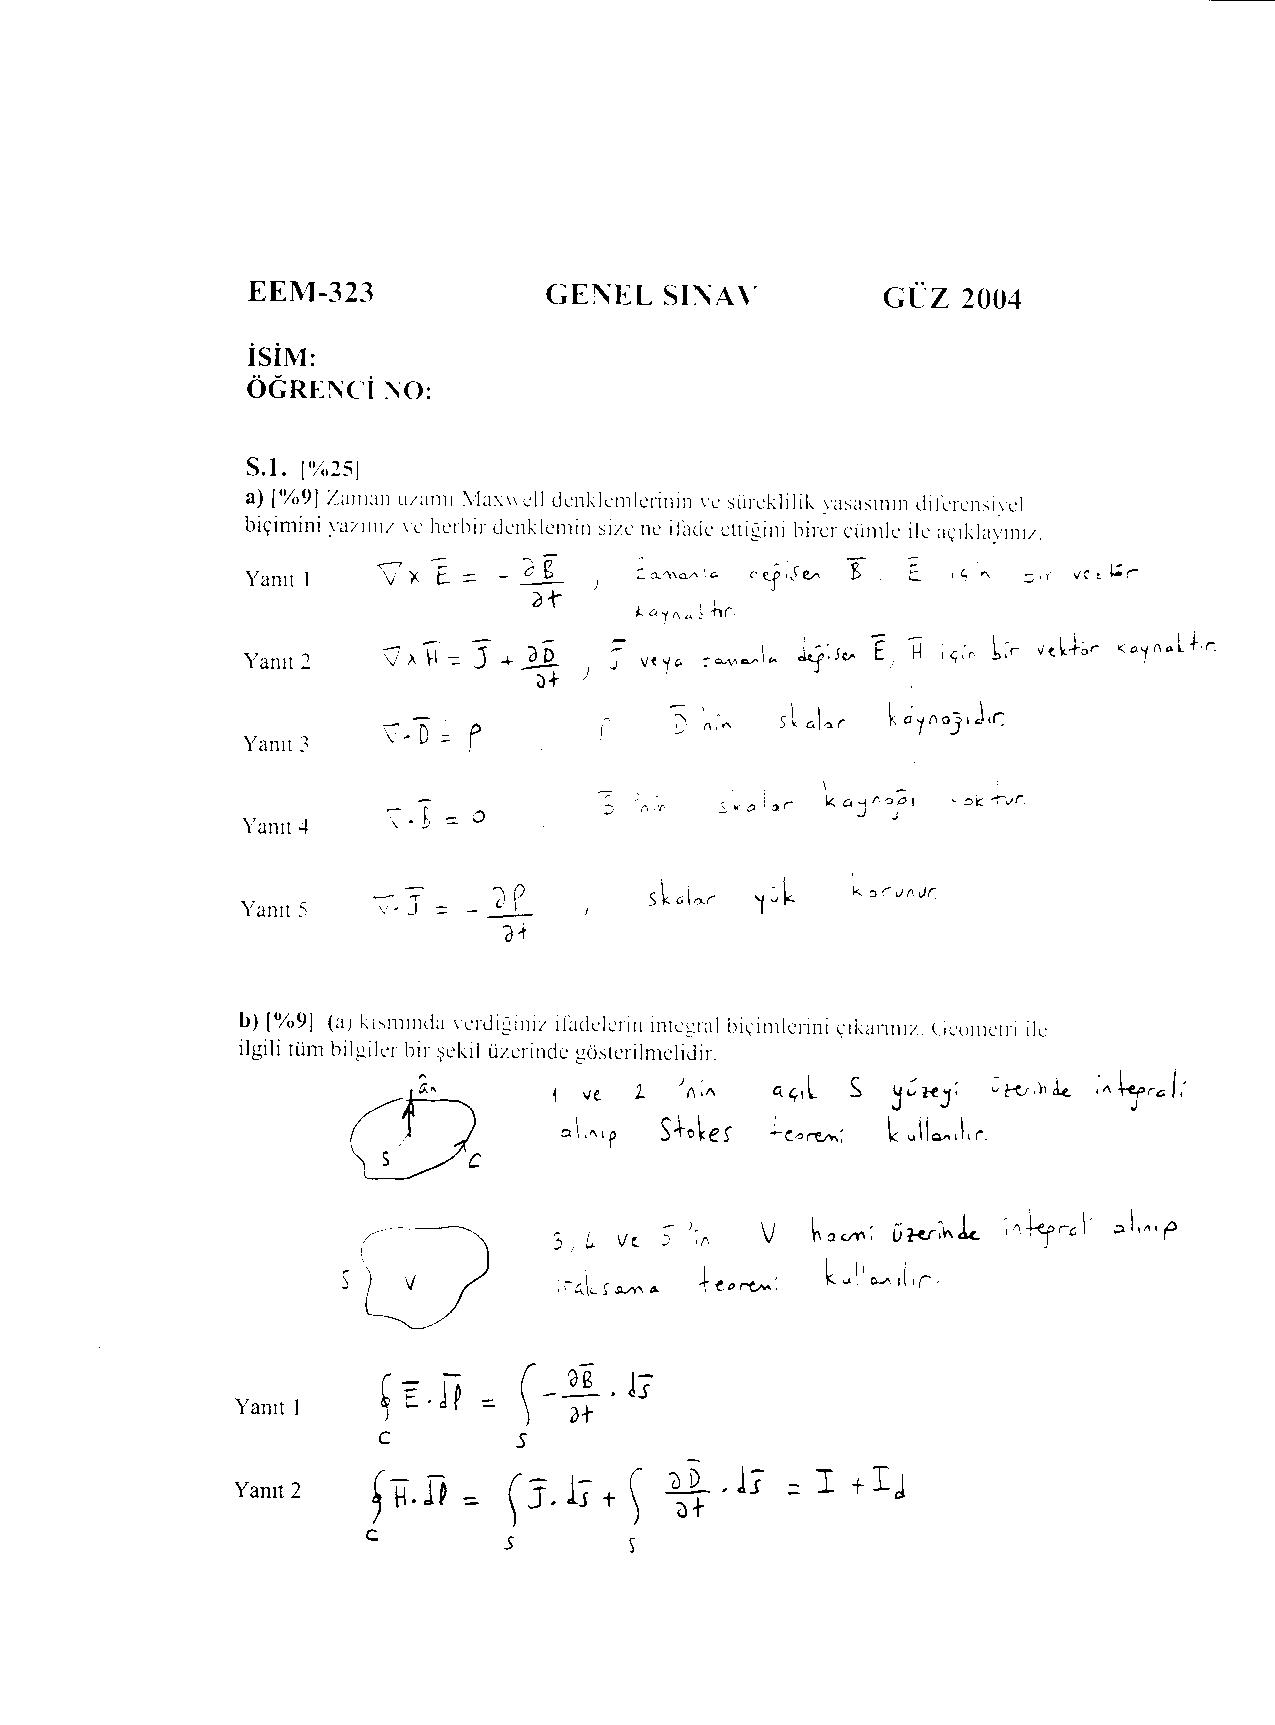 EEM-323 GENEL SINAV GÜZ 2004
İSİM:
ÖĞRENCİ NO:
S.1. [%25]
a) [%9] Zaman uzamı Maxwell denklemlerinin ve süreklilik yasasının diferensiyel
biçimini yazınız ve herbir denklemin size ne ifade ettiğini birer cümle ile açıklayınız.
Yanıt 1 ∇ × E̅ = - ∂B̅/∂t , zamanla değişen B̅, E̅ için bir vektör
kaynaktır.
Yanıt 2 ∇ × H̅ = J̅ + ∂D̅/∂t , J̅ veya zamanla değişen E̅, H̅ için bir vektör kaynaktır.
Yanıt 3 ∇·D̅ = ρ , ρ D̅'nin skalar kaynağıdır.
Yanıt 4 ∇·B̅ = 0 , B̅'nin skalar kaynağı yoktur.
Yanıt 5 ∇·J̅ = - ∂ρ/∂t , skalar yük korunur.
b) [%9] (a) kısmında verdiğiniz ifadelerin integral biçimlerini çıkarınız. Geometri ile
ilgili tüm bilgiler bir şekil üzerinde gösterilmelidir.
âₙ
S C
1 ve 2 'nin açık S yüzeyi üzerinde integrali
alınıp Stokes teoremi kullanılır.
S V
3, 4 ve 5 'in V hacmi üzerinde integral alınıp
ıraksama teoremi kullanılır.
Yanıt 1 ∮_C E̅·dl̅ = ∫_S -∂B̅/∂t · ds̅
Yanıt 2 ∮_C H̅·dl̅ = ∫_S J̅·ds̅ + ∫_S ∂D̅/∂t · ds̅ = I + I_d